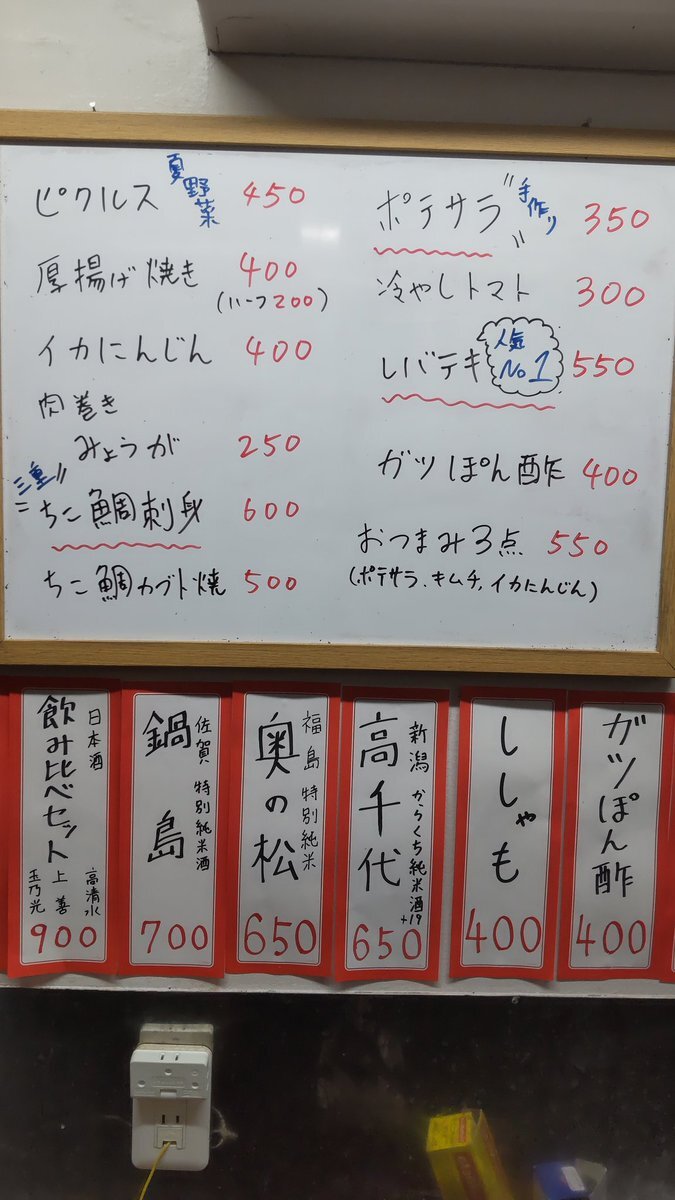 ピクルス 夏野菜 450
厚揚げ焼き 400
(ハーフ200)
イカにんじん 400
肉巻き
みょうが 250
三重
ちこ鯛刺身 600
ちこ鯛カブト焼 500
ポテサラ 手作り 350
冷やしトマト 300
レバテキ 人気No1 550
ガツぽん酢 400
おつまみ3点 550
(ポテサラ、キムチ,イカにんじん)
ガツぽん酢
400
ししゃも
400
新潟 からくち純米酒+19
高千代
650
福島 特別純米
奥の松
650
佐賀 特別純米酒
鍋島
700
日本酒
飲み比べセット
高清水
上善
玉乃光
900